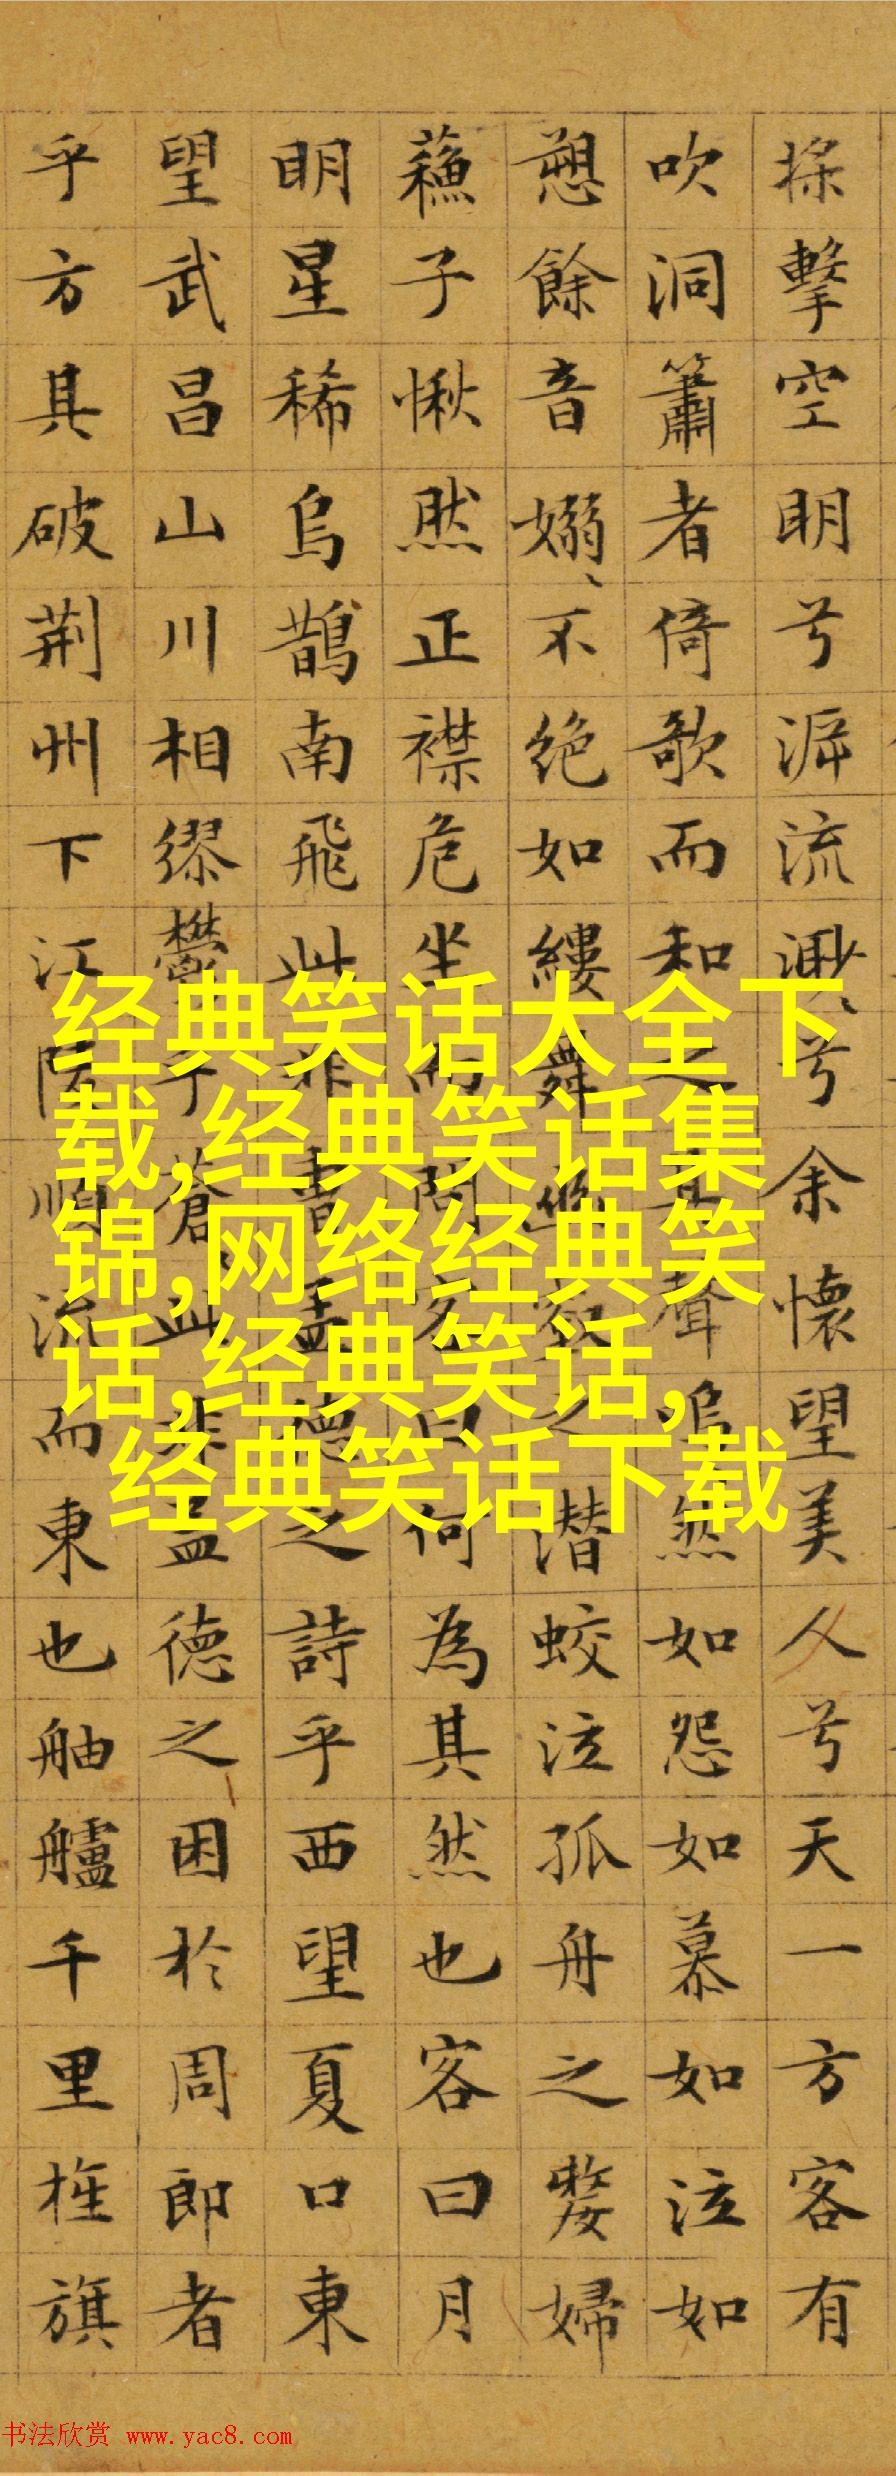 擊空明兮泝流渺〻兮余懷望美人兮天一方客有
吹洞簫者倚歌而和之其聲嗚然如怨如慕如泣如
愬餘音嫋〻不絶如縷舞幽壑之潛蛟泣孤舟之嫠婦
蘓子愀然正襟危坐而問客曰何為其然也客曰月
明星稀烏鵲南飛此非曹孟德之詩乎西望夏口東
望武昌山川相繆鬱乎蒼〻此非孟德之困於周郎者
乎方其破荆州下江陵順流而東也舳艫千里旌旗
经典笑话大全下
载,经典笑话集
锦,网络经典笑
话,经典笑话,
经典笑话下载
书法欣赏 www.yac8.com